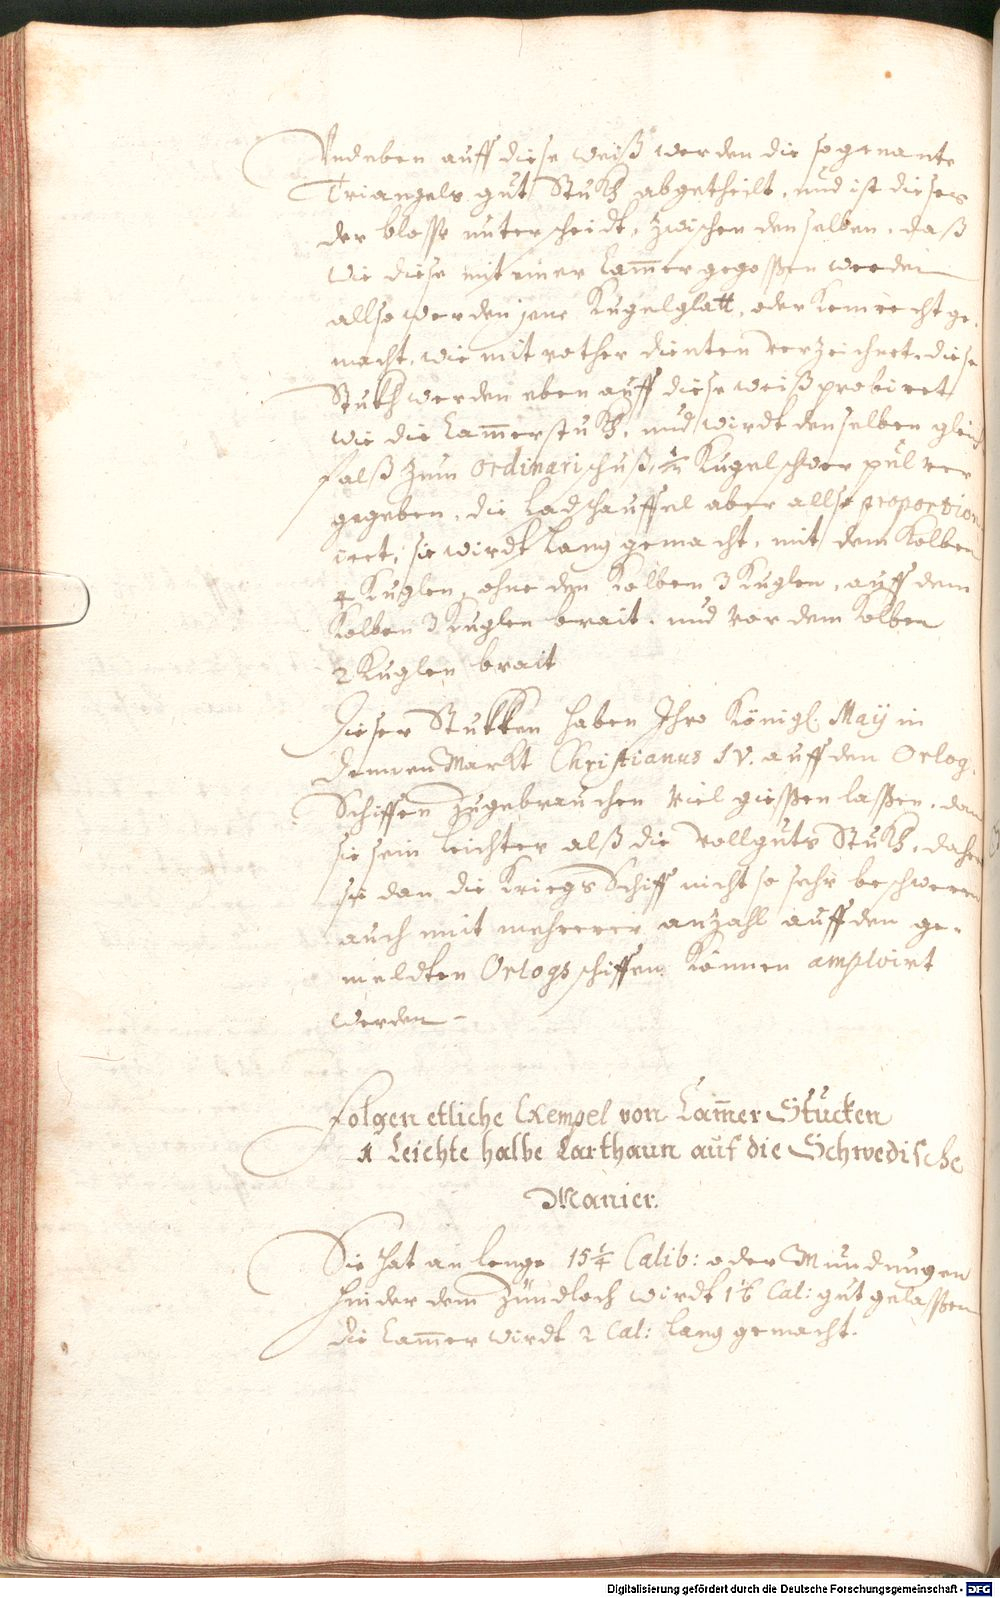 Und eben auff diese weiß werden die so genante
Triangels gut Stukh abgetheilt, und ist dieses
der blosse unterscheidt, zwischen denselben, daß
wie diese mit einer Cam̄er gegossen werden
allso werden jene Kugelglatt, oder Kernrecht ge-
macht, wie mit rother dinten verzeichnet, diese
Stukh werden eben auff diese weiß probiret
wie die Cam̄erstukh, und wirdt denselben gleich
falß zum Ordinari schuß, 1/2 Kugelschwer pulver
gegeben, die Ladschauffel aber allso proportion-
iret, sie wirdt lang gemacht, mit dem Kolben
4 Kuglen, ohne den Kolben 3 Kuglen, auff dem
Kolben 3 Kuglen brait, und vor dem Kolben
2 Kuglen brait
Dieser Stukken haben Ihro Königl. May in
Dennenmarkt Christianus IV. auff den Orlog-
Schiffen zugebrauchen viel giessen lassen, dan
sie sein leichter alß die vollguts Stukh, daher
sie dan die Kriegs Schiff nicht so sehr beschweren
auch mit mehrerer anzahl auff den ge-
meldten Orlogsschiffen können amploirt
werden –
Folgen etliche Exempel von Cam̄er Stücken
1 Leichte halbe Carthaun auf die Schwedische
Manier.
Sie hat an lenge 15 1/4 Calib: oder Mundungen
hinder dem Zündloch wirdt 1 1/6 Cal: gut gelassen
die Cam̄er wirdt 2 Cal: lang gemacht.
Digitalisierung gefördert durch die Deutsche Forschungsgemeinschaft - DFG